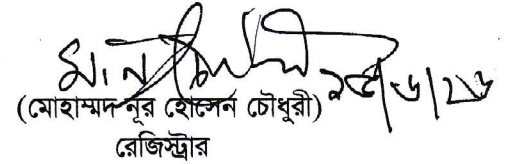 ১৫/৬/২৬
(মোহাম্মদ নূর হোসেন চৌধুরী)
রেজিস্ট্রার